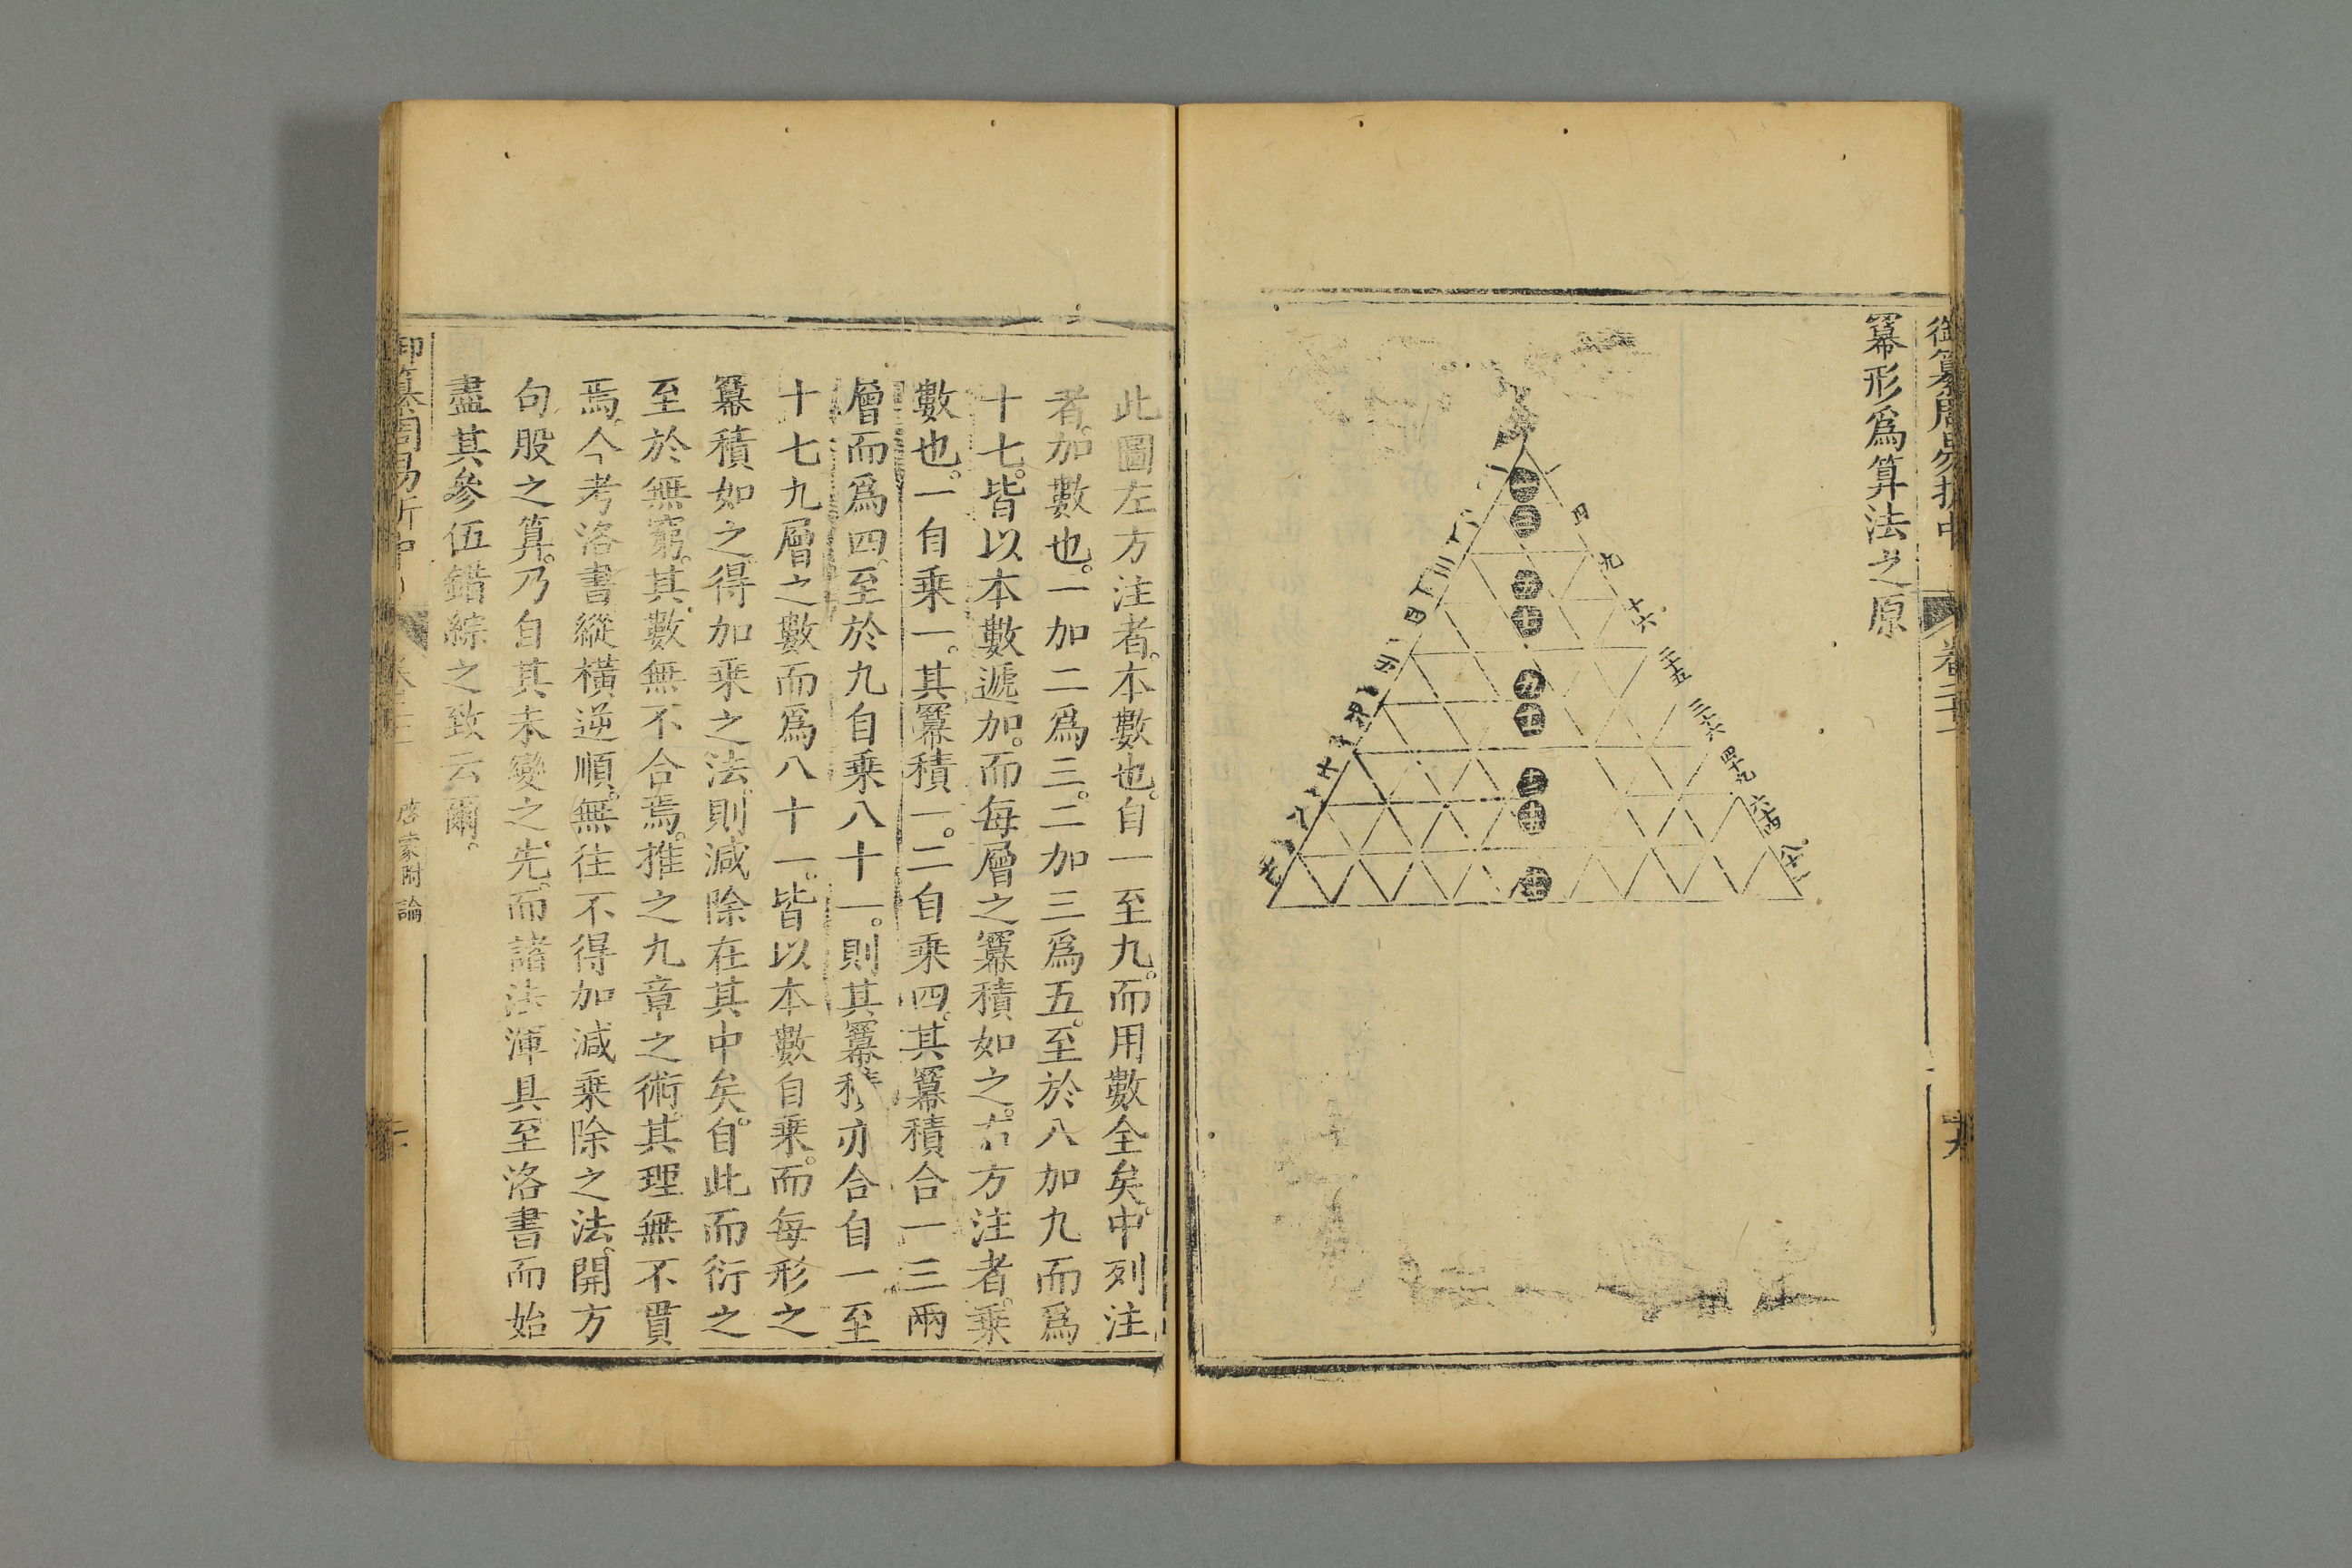 御纂周易折中
卷二十一
十九
冪形爲算法之原
一
四
九
十六
二十五
三十六
四十九
六十四
八十一
一
三
五
七
九
十一
十三
十五
十七
此圖左方注者。本數也。自一至九。而用數全矣。中列注
者。加數也。一加二爲三。二加三爲五。至於八加九而爲
十七。皆以本數遞加。而每層之冪積如之。右方注者。乘
數也。一自乘一。其冪積一。二自乘四。其冪積合一三兩
層而爲四。至於九自乘八十一。則其冪積亦合自一至
十七九層之數而爲八十一。皆以本數自乘。而每形之
冪積如之。得加乘之法。則減除在其中矣。自此而衍之
至於無窮。其數無不合焉。推之九章之術。其理無不貫
焉。今考洛書縱橫逆順。無往不得加減乘除之法。開方
句股之算。乃自其未變之先。而諸法渾具至洛書而始
盡其參伍錯綜之致云爾。
御纂周易折中
啓蒙附論